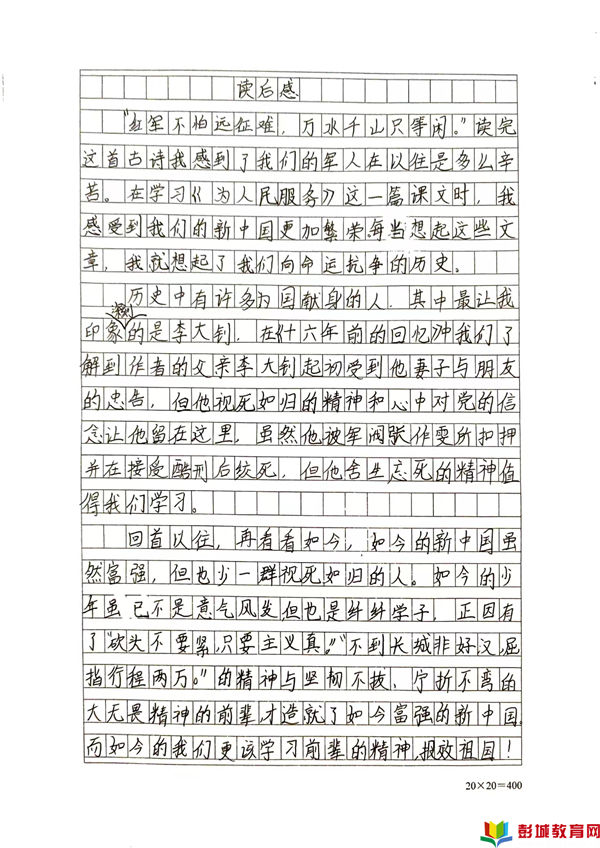 读后感
“红军不怕远征难，万水千山只等闲。”读完
这首古诗我感到了我们的军人在以往是多么辛
苦。在学习《为人民服务》这一篇课文时，我
感受到我们的新中国更加繁荣每当想起这些文
章，我就想起了我们向命运抗争的历史。
历史中有许多为国献身的人，其中最让我
印象深刻的是李大钊，在《十六年前的回忆》中我们了
解到作者的父亲李大钊起初受到他妻子与朋友
的忠告，但他视死如归的精神和心中对党的信
念让他留在这里，虽然他被军阀张作雯所扣押
并在接受酷刑后绞死，但他舍生忘死的精神值
得我们学习。
回首以往，再看看如今，如今的新中国虽
然富强，但也少一群视死如归的人。如今的少
年虽已不是意气风发但也是纠纠学子，正因有
了“砍头不要紧，只要主义真。”“不到长城非好汉，屈
指行程两万。”的精神与坚韧不拔、宁折不弯的
大无畏精神的前辈，才造就了如今富强的新中国
而如今的我们更该学习前辈的精神，报效祖国！
20×20=400
彭城教育网